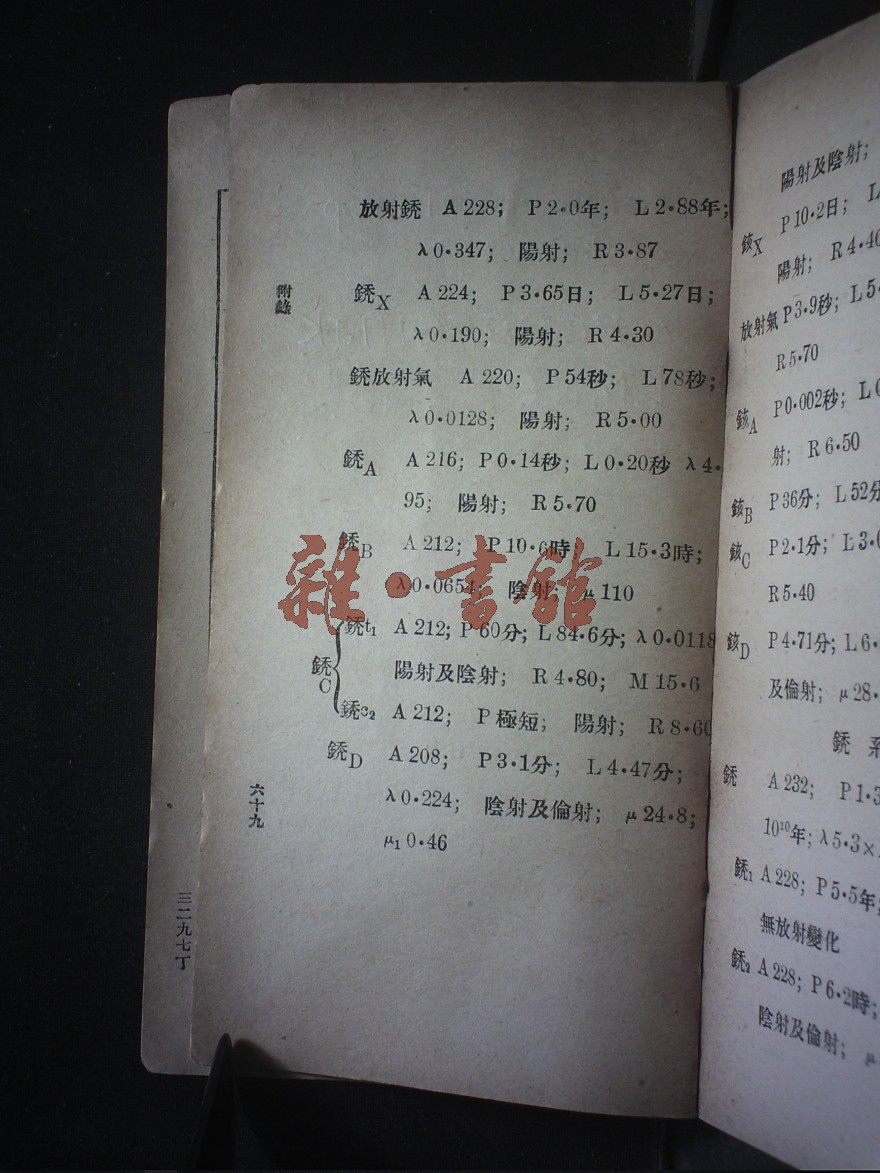 附錄
放射銹 A 228; P 2·0年; L 2·88年;
λ 0·347; 陽射; R 3·87
銹X A 224; P 3·65日; L 5·27日;
λ 0·190; 陽射; R 4·30
銹放射氣 A 220; P 54秒; L 78秒;
λ 0·0128; 陽射; R 5·00
銹A A 216; P 0·14秒; L 0·20秒 λ 4·
95; 陽射; R 5·70
銹B A 212; P 10·6時; L 15·3時;
λ 0·0654; 陰射; μ 110
銹C
銹t₁ A 212; P 60分; L 84·6分; λ 0·0118
陽射及陰射; R 4·80; M 15·6
銹c₂ A 212; P 極短; 陽射; R 8·60
銹D A 208; P 3·1分; L 4·47分;
λ 0·224; 陰射及倫射; μ 24·8;
μ₁ 0·46
六十九
三二九七丁
雜·書館
陽射及陰射;
鋑X P 10·2日; L
陽射; R 4·40
放射氣 P 3·9秒; L 5·
R 5·70
鋑A P 0·002秒; L 0
射; R 6·50
鋑B P 36分; L 52分
鋑C P 2·1分; L 3·0
R 5·40
鋑D P 4·71分; L 6·
及倫射; μ 28·
銹系
銹 A 232; P 1·3
10¹⁰年; λ 5·3×
銹₁ A 228; P 5·5年;
無放射變化
銹₂ A 228; P 6·2時;
陰射及倫射; μ